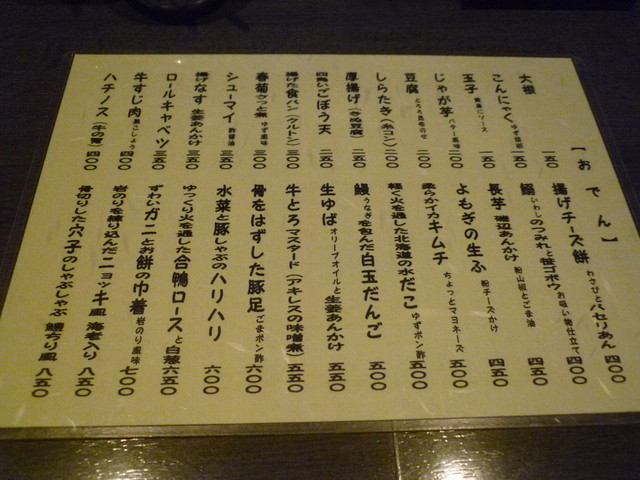 【おでん】
大根 一五〇
こんにゃく ゆず味噌 一五〇
玉子 一五〇
じゃが芋 バター風味 二〇〇
豆腐 とろろ昆布のせ 二〇〇
しらたき（糸コン） 二〇〇
厚揚げ（きぬ豆腐） 二五〇
四角いごぼう天 二五〇
揚げた食パン（クルトン） 三〇〇
春菊さっと煮 ゆず風味 三〇〇
シューマイ 酢醤油 三五〇
揚げなす 生姜あんかけ 三五〇
ロールキャベツ 三五〇
牛すじ肉 黒こしょう 四〇〇
ハチノス（牛の胃） 四〇〇
揚げチーズ餅 わさびとパセリあん 四〇〇
鰯 いわしのつみれと笹ゴボウ お吸い物仕立て 四五〇
長芋 磯辺あんかけ 粉山椒とごま油 四五〇
よもぎの生ふ 粉チーズかけ 四五〇
柔らかイカキムチ ちょっとマヨネーズ 五〇〇
軽く火を通した北海道の水だこ ゆずポン酢 五〇〇
鰻 うなぎを包んだ白玉だんご 五〇〇
生ゆば オリーブオイルと生姜あんかけ 五五〇
牛とろ マスタード（アキレスの味噌煮） 五五〇
骨をはずした豚足 ごまポン酢 六〇〇
水菜と豚しゃぶのハリハリ 六〇〇
ゆっくり火を通した合鴨ロースと白葱 六五〇
ずわいガニとお餅の巾着 岩のり風味 七〇〇
岩のりを練り込んだニョッキ風 海老入り 八五〇
骨切りした穴子のしゃぶしゃぶ 鱧ちり風 八五〇